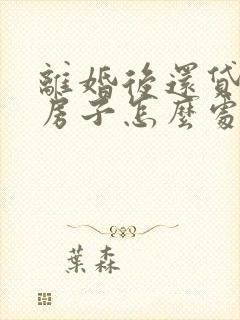 離婚後還貸
房子怎麼處
葉森